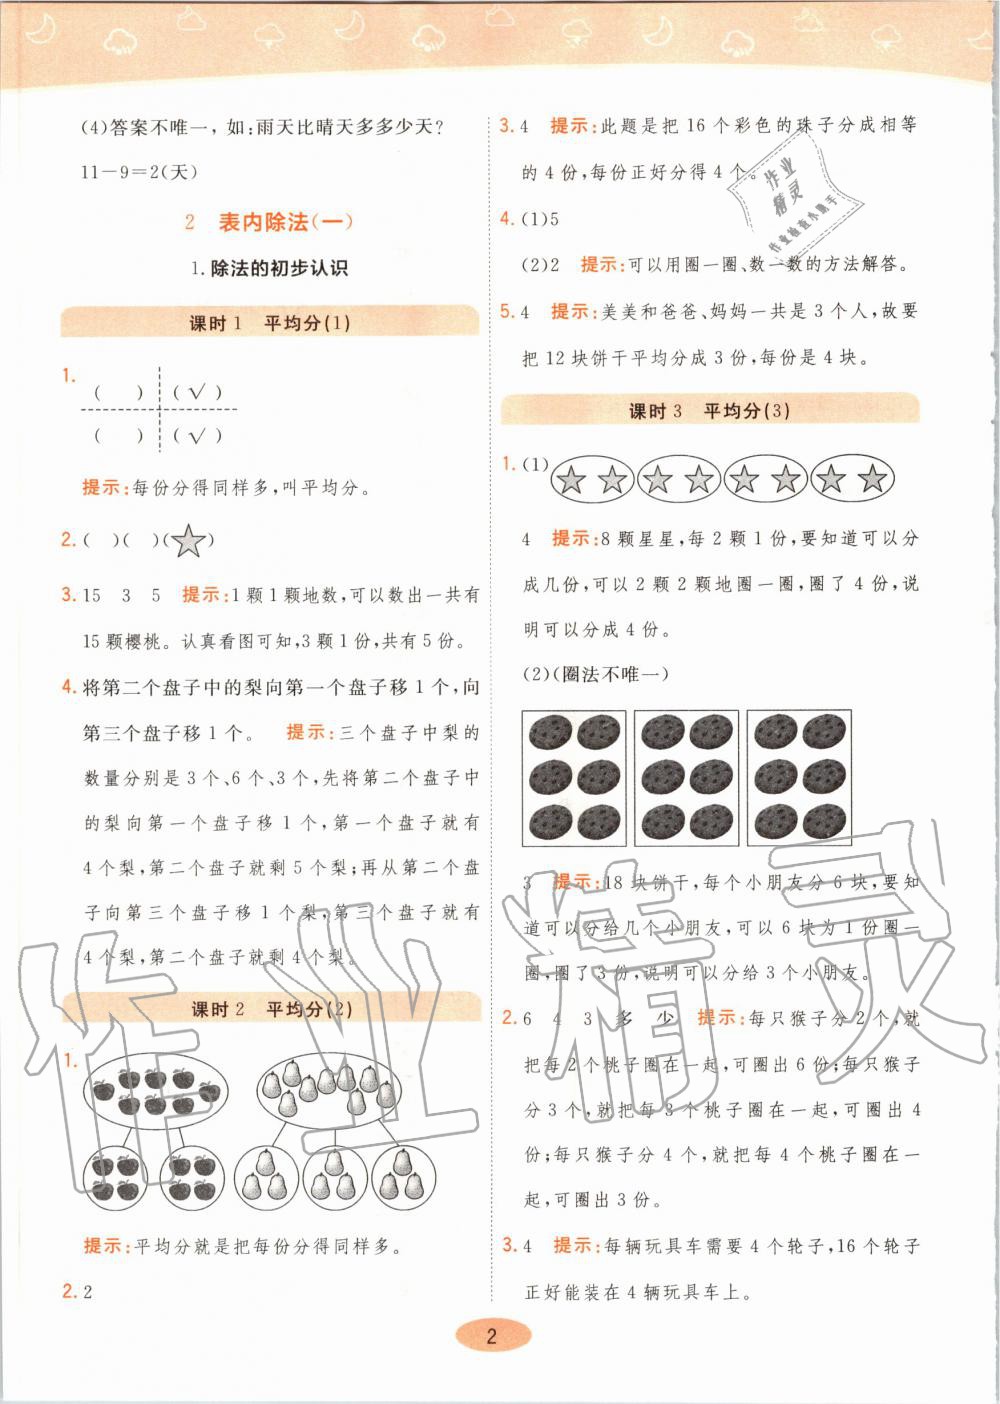 (4)答案不唯一,如:雨天比晴天多多少天?
11-9=2(天)
2 表内除法(一)
1.除法的初步认识
课时1 平均分(1)
1.
( ) (√)
( ) (√)
提示:每份分得同样多,叫平均分。
2.( )( )(☆)
3. 15 3 5 提示:1颗1颗地数,可以数出一共有
15颗樱桃。认真看图可知,3颗1份,共有5份。
4. 将第二个盘子中的梨向第一个盘子移1个,向
第三个盘子移1个。 提示:三个盘子中梨的
数量分别是3个、6个、3个,先将第二个盘子中
的梨向第一个盘子移1个,第一个盘子就有
4个梨,第二个盘子就剩5个梨;再从第二个盘
子向第三个盘子移1个梨,第三个盘子就有
4个梨,第二个盘子就剩4个梨。
课时2 平均分(2)
1.
提示:平均分就是把每份分得同样多。
2. 2
3. 4 提示:此题是把16个彩色的珠子分成相等
的4份,每份正好分得4个。
4. (1)5
(2)2 提示:可以用圈一圈、数一数的方法解答。
5. 4 提示:美美和爸爸、妈妈一共是3个人,故要
把12块饼干平均分成3份,每份是4块。
课时3 平均分(3)
1. (1)
4 提示:8颗星星,每2颗1份,要知道可以分
成几份,可以2颗2颗地圈一圈,圈了4份,说
明可以分成4份。
(2)(圈法不唯一)
3 提示:18块饼干,每个小朋友分6块,要知
道可以分给几个小朋友,可以6块为1份圈一
圈,圈了3份,说明可以分给3个小朋友。
2. 6 4 3 多 少 提示:每只猴子分2个,就
把每2个桃子圈在一起,可圈出6份;每只猴子
分3个,就把每3个桃子圈在一起,可圈出4
份;每只猴子分4个,就把每4个桃子圈在一
起,可圈出3份。
3. 4 提示:每辆玩具车需要4个轮子,16个轮子
正好能装在4辆玩具车上。
2
作业精灵
作业
精灵
作业检查小助手